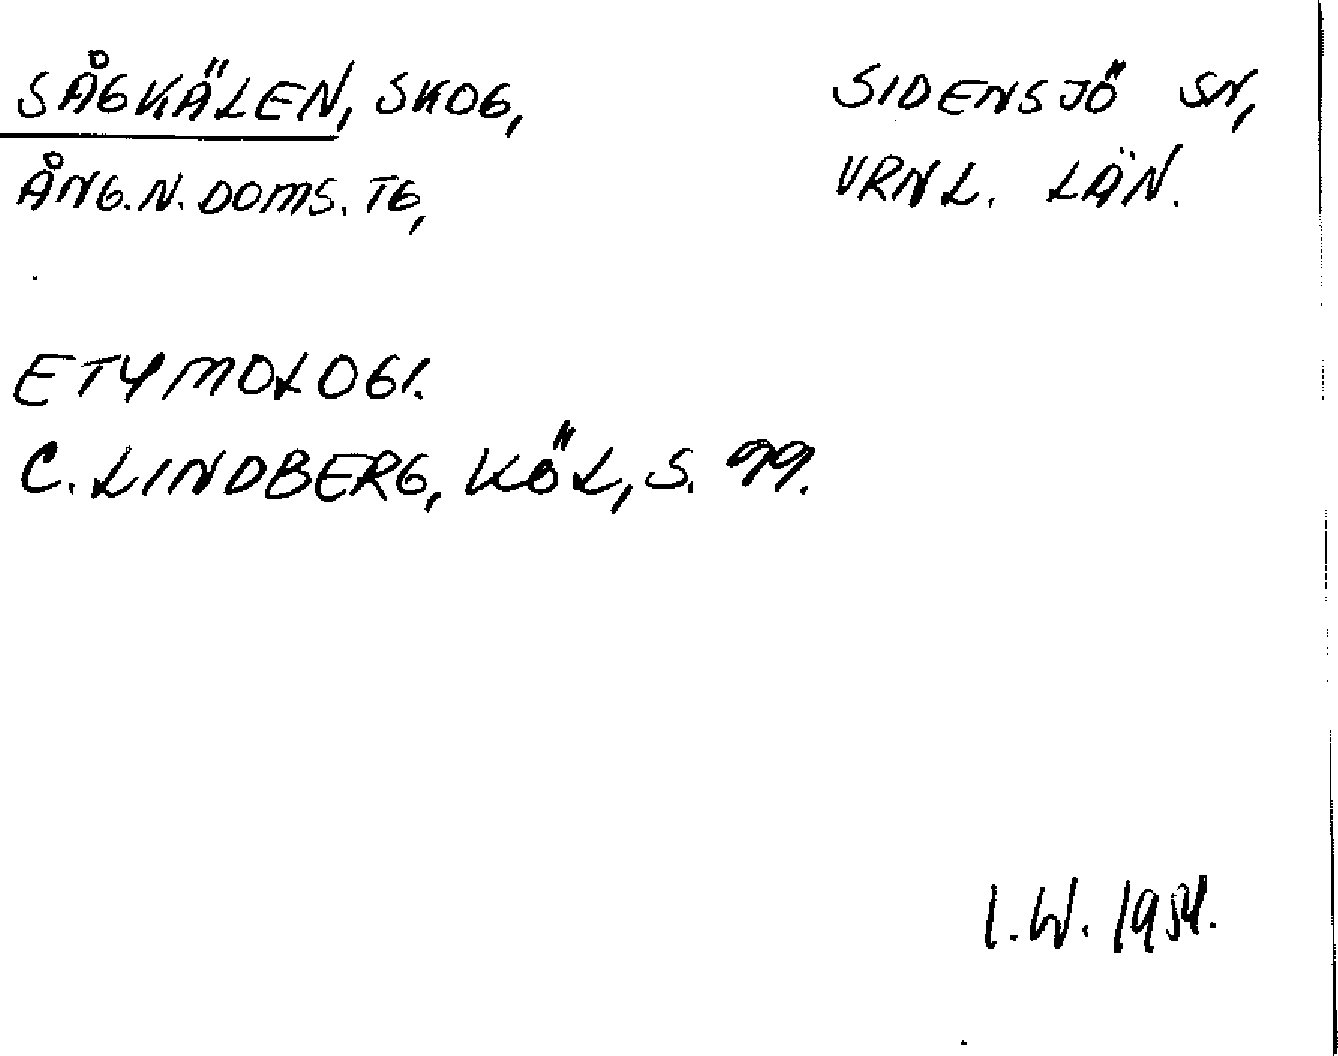 SÅGKÄLEN, SKOG, SIDENSJÖ SN,
ÅNG.N.DOMS.TG, VRNL. LÄN.
ETYMOLOGI.
C. LINDBERG, KÖL, S. 99.
I.W. 1954.